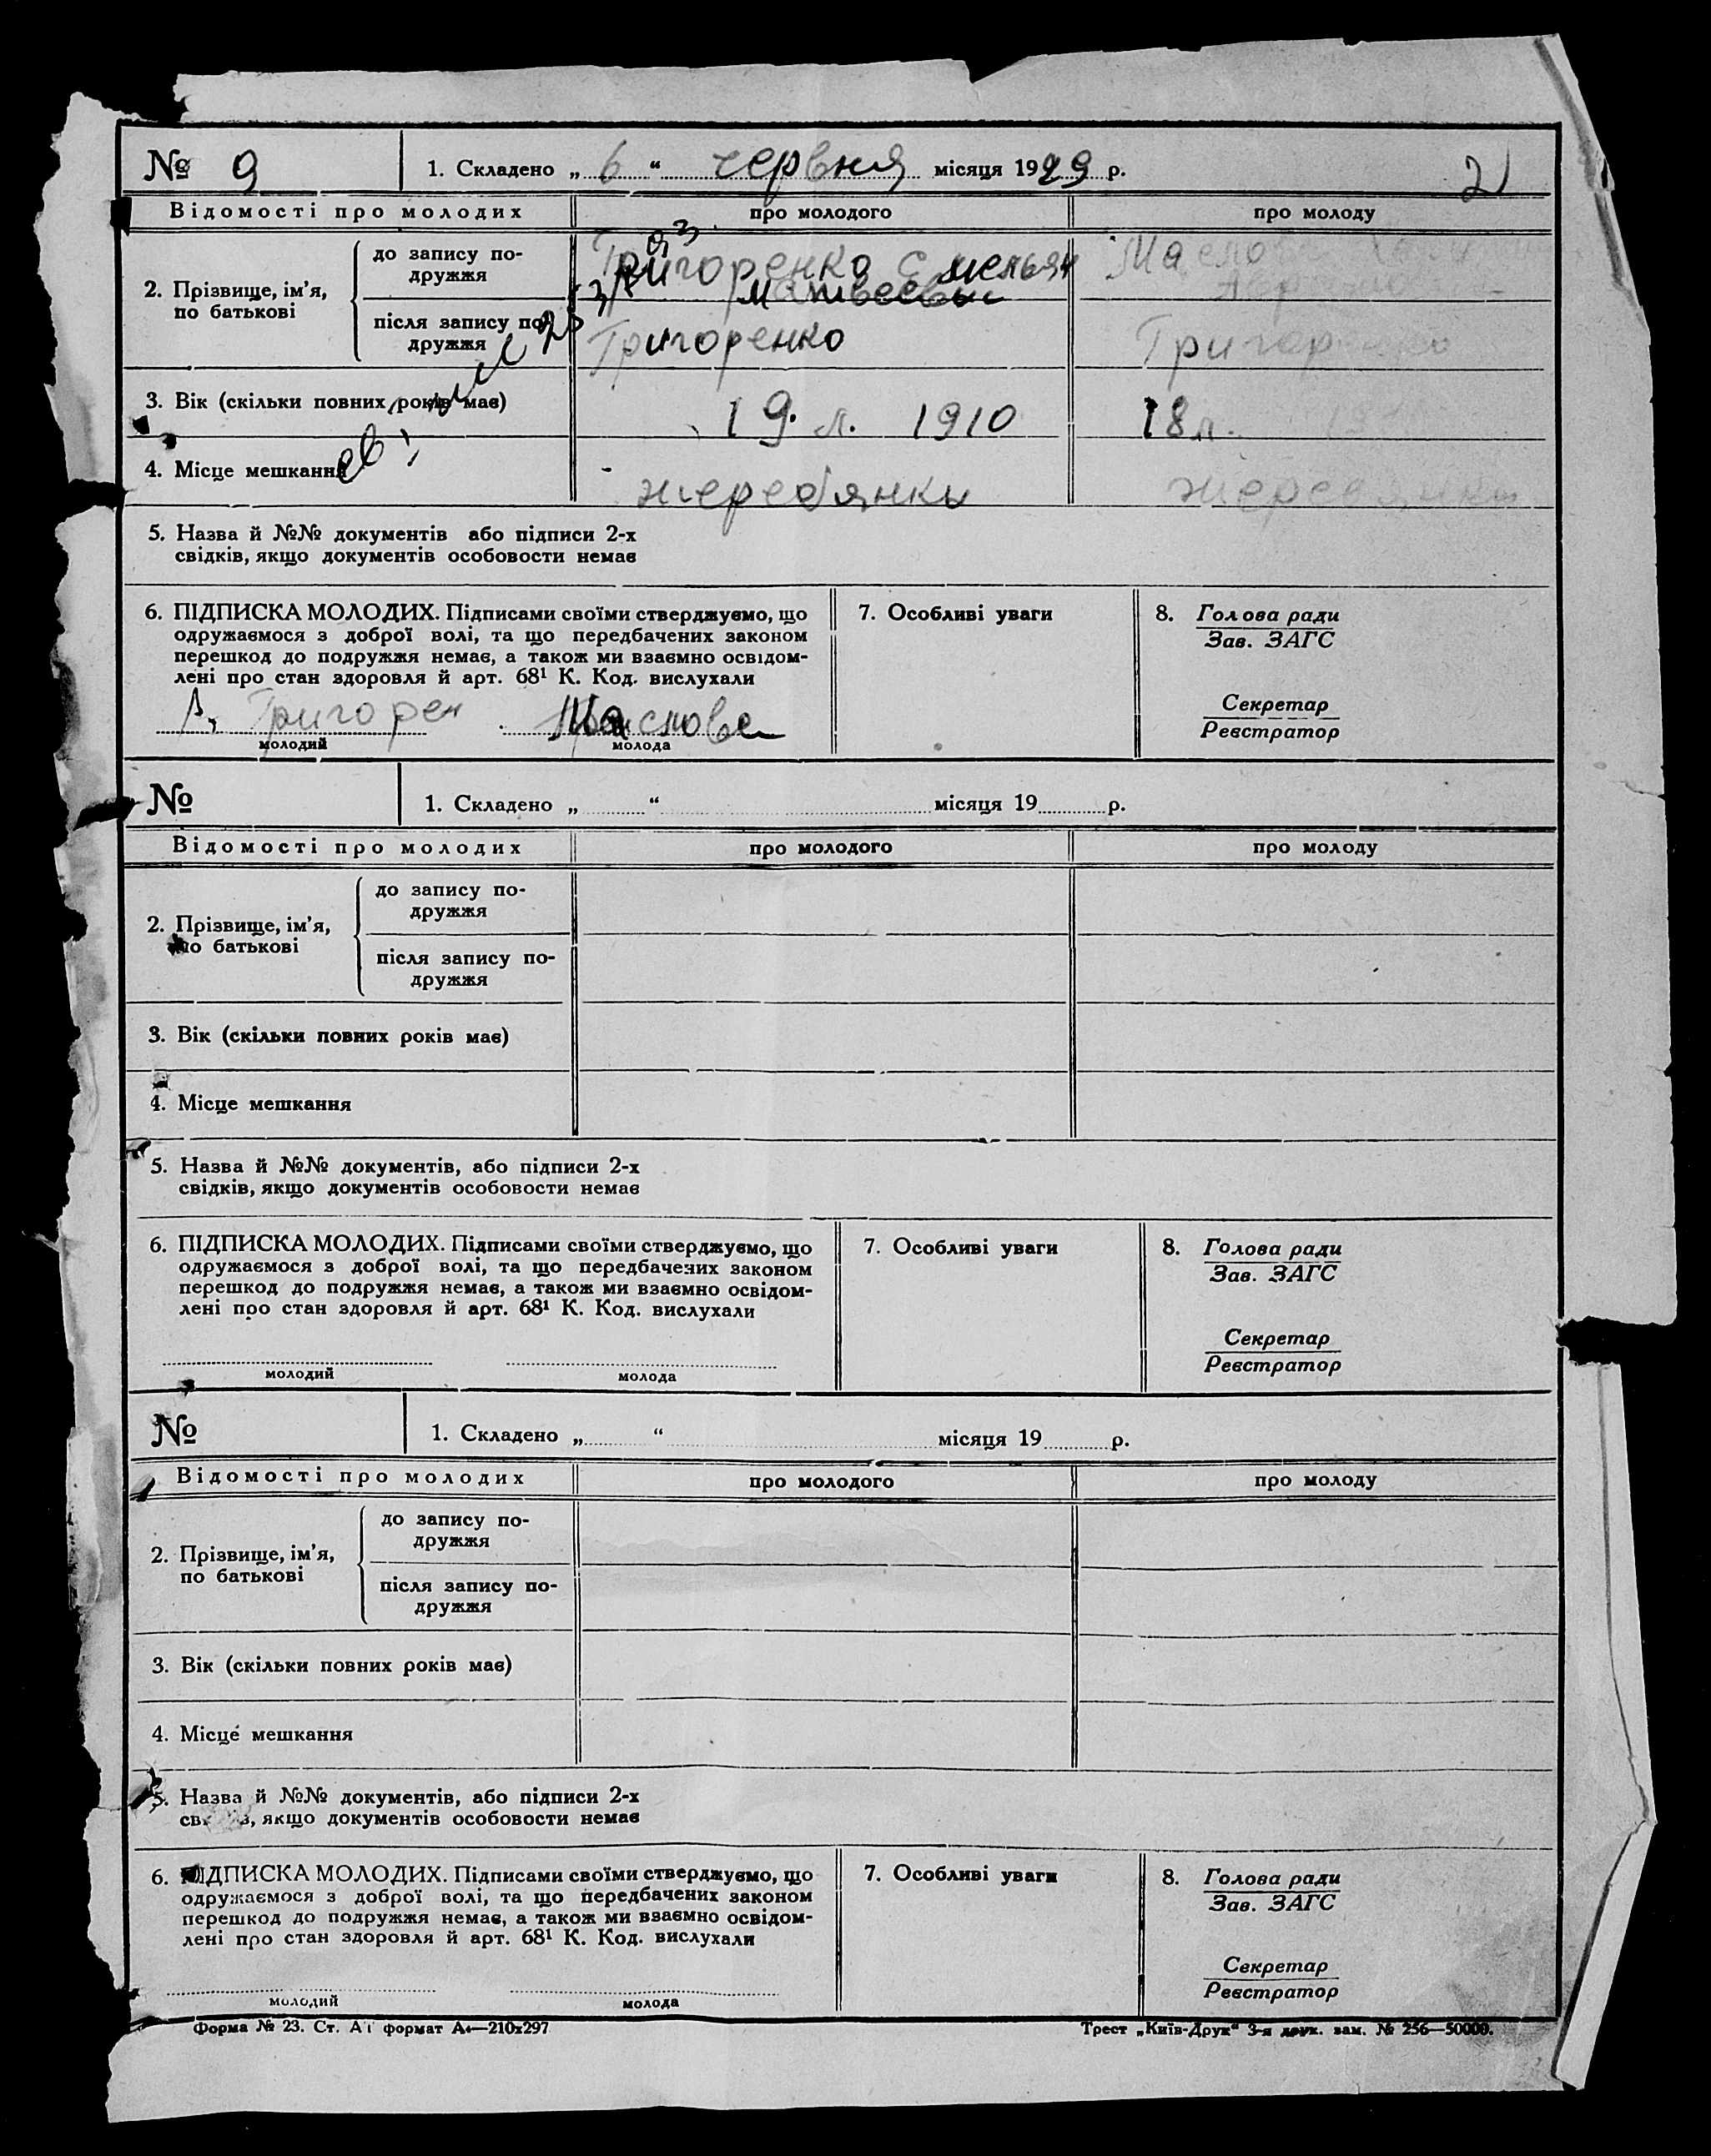 № 9 1. Складено „ 6 “ червня місяця 1929 р. 21
Відомості про молодих про молодого про молоду
2. Прізвище, ім’я, по батькові
до запису по-
дружжя
Григоренко Емельян Маслова
Матвеевич
після запису по-
дружжя
Григоренко Григоренко
3. Вік (скільки повних років має) 19 л. 1910 18 л.
4. Місце мешкання жеребянки жеребянки
5. Назва й №№ документів або підписи 2-х
свідків, якщо документів особовости немає
6. ПІДПИСКА МОЛОДИХ. Підписами своїми стверджуємо, що
одружаємося з доброї волі, та що передбачених законом
перешкод до подружжя немає, а також ми взаємно освідом-
лені про стан здоровля й арт. 68¹ К. Код. вислухали
Григорен Маслова
молодий молода
7. Особливі уваги
8. Голова ради
Зав. ЗАГС
Секретар
Реєстратор
№ 1. Складено „ “ місяця 19 р.
Відомості про молодих про молодого про молоду
2. Прізвище, ім’я,
по батькові
до запису по-
дружжя
після запису по-
дружжя
3. Вік (скільки повних років має)
4. Місце мешкання
5. Назва й №№ документів, або підписи 2-х
свідків, якщо документів особовости немає
6. ПІДПИСКА МОЛОДИХ. Підписами своїми стверджуємо, що
одружаємося з доброї волі, та що передбачених законом
перешкод до подружжя немає, а також ми взаємно освідом-
лені про стан здоровля й арт. 68¹ К. Код. вислухали
молодий молода
7. Особливі уваги
8. Голова ради
Зав. ЗАГС
Секретар
Реєстратор
№ 1. Складено „ “ місяця 19 р.
Відомості про молодих про молодого про молоду
2. Прізвище, ім’я,
по батькові
до запису по-
дружжя
після запису по-
дружжя
3. Вік (скільки повних років має)
4. Місце мешкання
5. Назва й №№ документів, або підписи 2-х
свідків, якщо документів особовости немає
6. ПІДПИСКА МОЛОДИХ. Підписами своїми стверджуємо, що
одружаємося з доброї волі, та що передбачених законом
перешкод до подружжя немає, а також ми взаємно освідом-
лені про стан здоровля й арт. 68¹ К. Код. вислухали
молодий молода
7. Особливі уваги
8. Голова ради
Зав. ЗАГС
Секретар
Реєстратор
Форма № 23. Ст. А і формат А4—210х297 Трест „Київ-Друк“ 3-я друк. зам. № 256—50000.